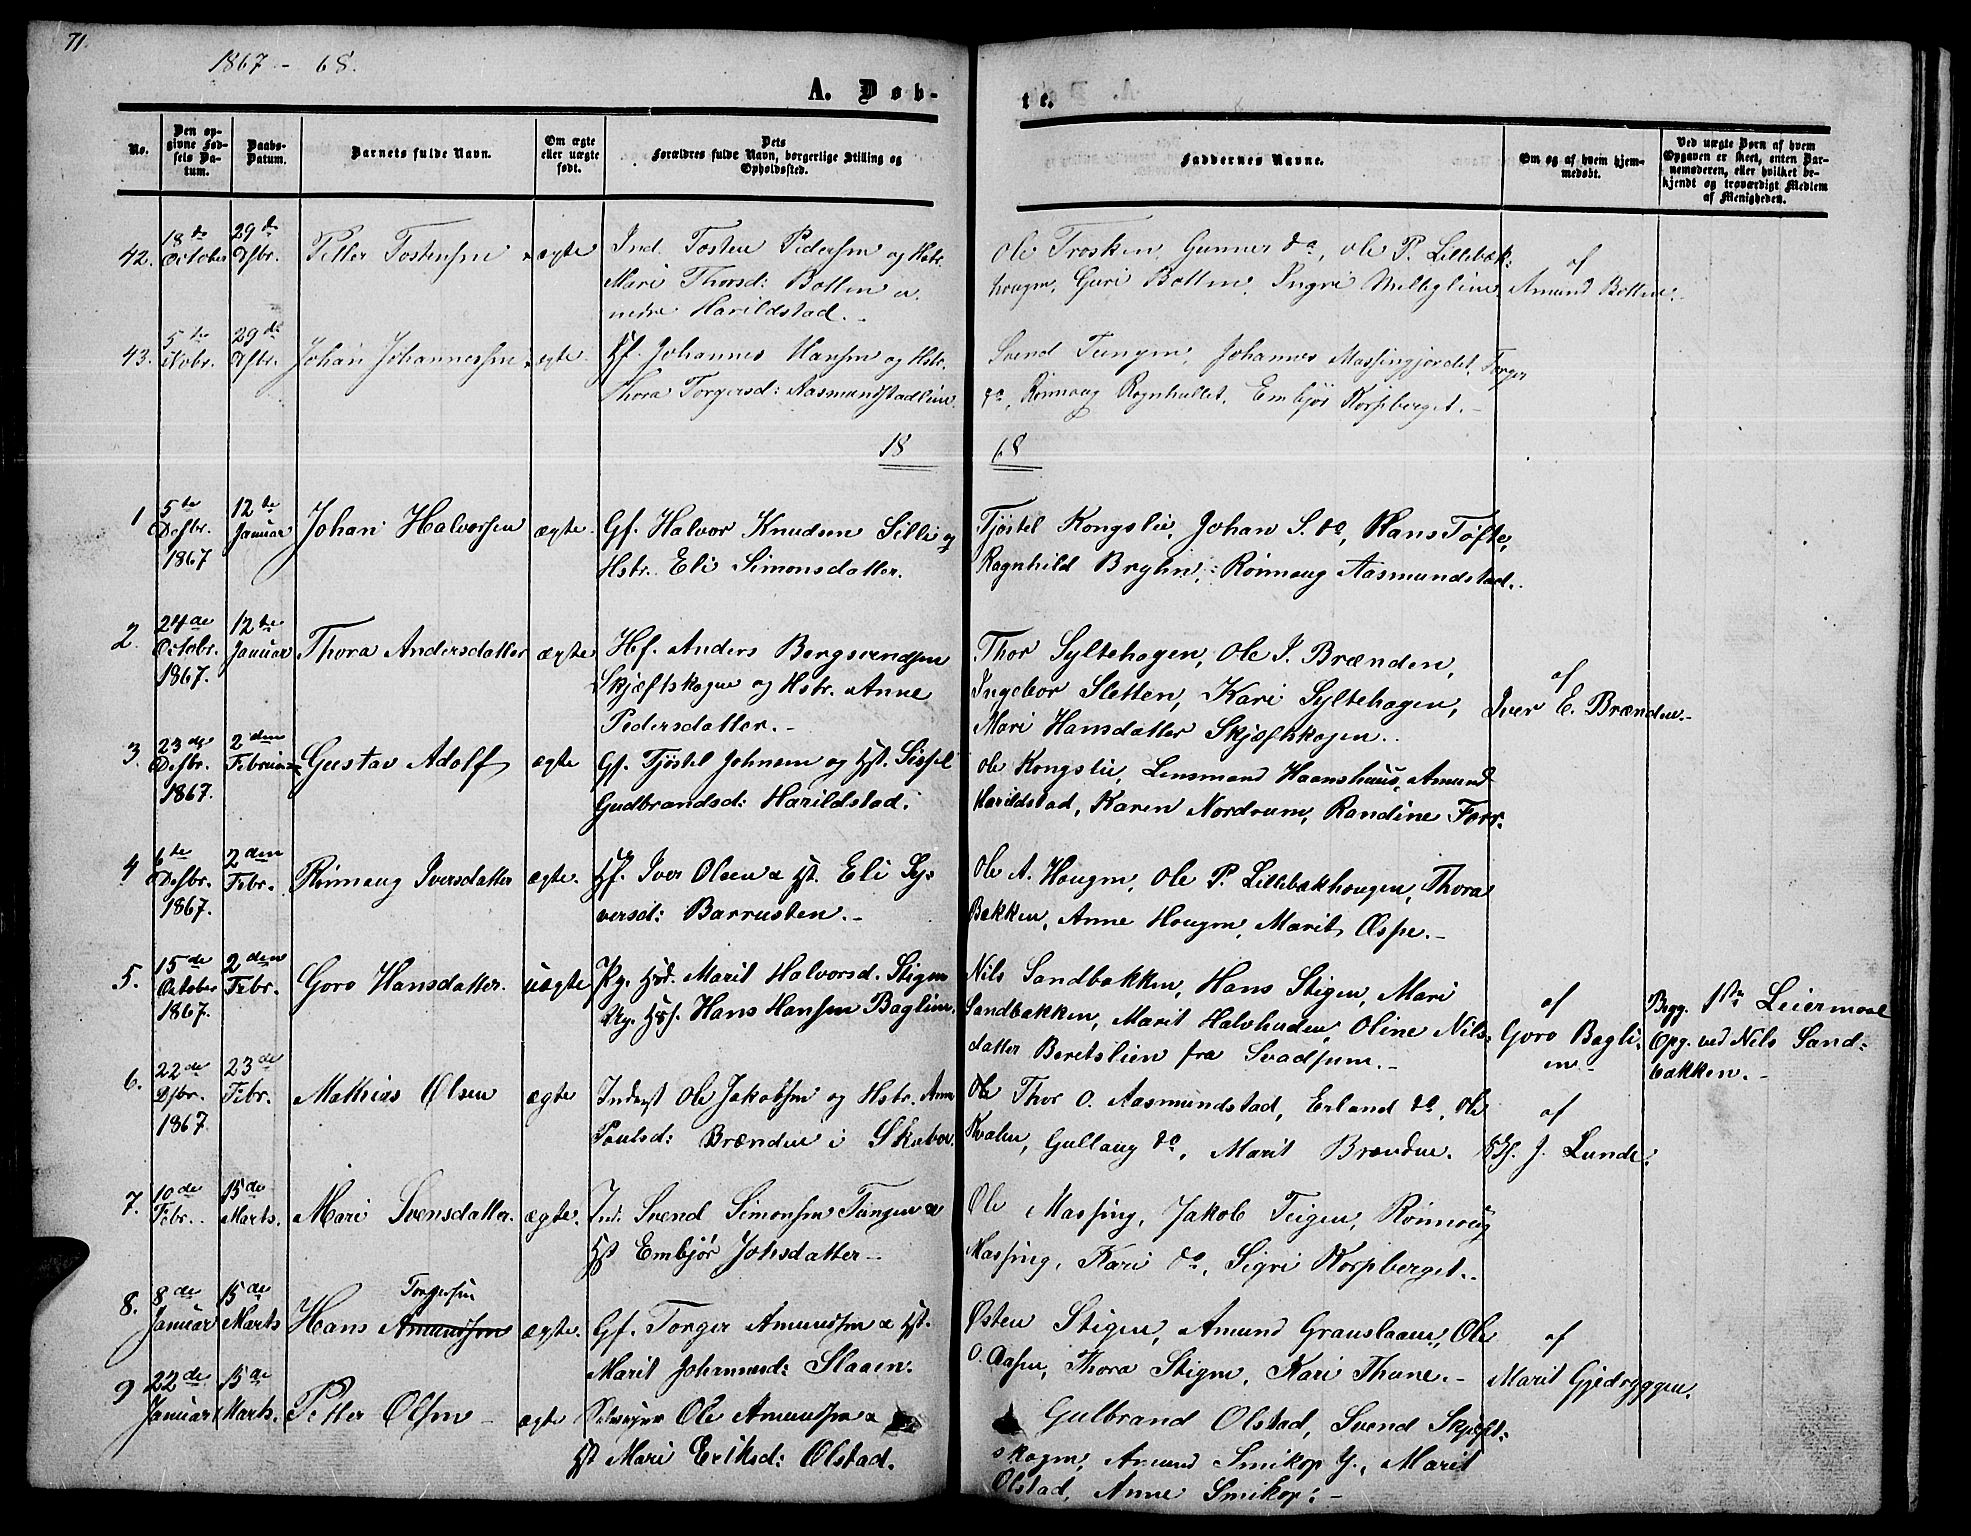 71.
1867 - 68.
A. Døb-
te.
No.
Den op-
givne Fød-
sels Da-
tum.
Daabs-
Datum.
Barnets fulde Navn.
Om ægte
eller uægte
født.
Dets
Forældres fulde Navn, borgerlige Stilling og
Opholdssted.
Faddernes Navne.
Om og af hvem hjem-
medøbt.
Ved uægte Børn af hvem
Opgaven er skeet, enten Bar-
nemoderen, eller hvilket be-
kjendt og troværdigt Medlem
af Menigheden.
42.
18de
October
29de
Dsbr.
Petter Tostensen
ægte
Ind. Tosten Pedersen og Hstr.
Mari Thorsd: Botten
nedre Harildstad.
Ole Trosken, Gunner do, Ole P. Lillebæk-
hougen, Guri Botten, Ingri
af
Amund Botten.
43.
5te
Novbr.
29de
Dsbr.
Johan Johannessen
ægte
Hf. Johannes Hansen og Hstr.
Thora Torgersd: Aasmundstadlien.
Svend Tungen, Johannes Massingjordet, Torger
do, Rønnaug Rognhullet, Embjør Korpberget.
1868
1
5te
Desbr.
1867
12te
Januar
Johan Halvorsen
ægte
Gf. Halvor Knudsen Silli og
Hstr. Eli Simonsdatter.
Tjøstel Kongslie, Johan S. do, Hans Tøfte,
Ragnhild Bryhn, Rønnaug Aasmundstad.
2
24de
Octobr.
1867.
12te
Januar
Thora Andersdatter
ægte
Hf. Anders Bergsvendsen
Skjæftskogen og Hstr. Anne
Pedersdatter.
Thor Syltehagen, Ole I. Brænden,
Ingebor Sletten, Kari Syltehagen,
Mari Hansdatter Skjæftskogen.
af
Iver E. Brænden.
3.
23de
Desbr.
1867.
2den
Februar
Gustav Adolf
ægte
Gf. Tjøstel Johnsen og Hst. Sissel
Gudbrandsd: Harildstad.
Ole Kongslie, Lensmand Haanshuus, Amund
Harildstad, Karen Nordrum, Randine Forr.
4
6te
Desbr.
1867
2den
Febr.
Rønnaug Iversdatter
ægte.
Hf. Iver Olsen & Hst. Eli Sy-
versd: Barrusten.
Ole A. Hougen, Ole P. Lillebækhougen, Thora
Bakken, Anne Hougen, Marit Øspe.
5.
15de
October
1867.
2den
Febr.
Goro Hansdatter.
uægte
Pg. Hsd. Marit Halvorsd. Stigen
Ug. Hsf. Hans Hansen Baglien.
Nils Sandbakken, Hans Stigen, Mari
Sandbakken, Marit Halvhuden, Oline Nils-
datter Beretslien fra Svadsum.
af
Goro Bagli-
en
Begg. 1ste Leiermaal
Opg. ved Nils Sand-
bakken.
6.
22de
Dsbr.
1867.
23de
Febr.
Mathias Olsen
ægte
Inderst Ole Jakobsen og Hstr. Ann
Paulsd: Brænden i Skabu.
Ole Thor O. Aasmundstad, Erland do, Ole
Kvalen, Gullaug do, Marit Brænden.
af
J. Lunde.
7.
10de
Febr.
15de
Marts.
Mari Svensdatter.
ægte.
Ind. Svend Simonsen Tungen &
Hst Embjør Johsdatter
Ole Massing, Jakob Teigen, Rønnoug
Massing, Kari do, Sigri Korpberget.
8.
8de
Januar
15de
Marts
Torgersen
Hans Amundsen
ægte.
Gf. Torger Amundsen & Hst.
Marit Johannesd: Slaaen.
Østen Stigen, Amund Graustaan, Ole
O. Aasen, Thora Stigen, Kari Thune.
af
Marit Gjedryggen.
9
22de
Januar
15de
Marts.
Petter Olsen
ægte
Selveier Ole Amundsen &
Hst Mari Eriksd: Olstad.
Gulbrand Olstad, Svend Skjæft-
skogen, Amund Smikop Y., Marit
Olstad, Anne Smikop.